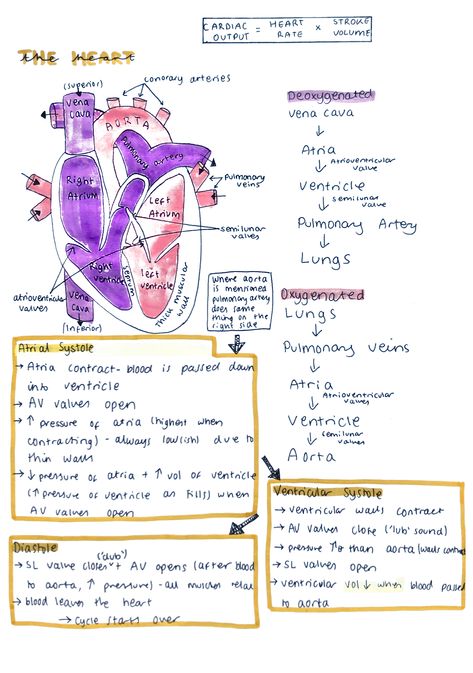 CARDIAC OUTPUT = HEART RATE x STROKE VOLUME
THE HEART
the heart
(superior)
coronary arteries
Vena
Cava
AORTA
Pulmonary artery
pulmonary
veins
Right
Atrium
Left
Atrium
semilunar
valves
Right
ventricle
septum
left
ventricle
Thick muscular
wall
atrioventricular
valves
Vena
Cava
(Inferior)
Where aorta
is mentioned
pulmonary artery
does same
thing on the
right side
Deoxygenated
Vena cava
↓
Atria
↓ Atrioventricular
valve
Ventricle
↓ semilunar
valve
Pulmonary Artery
↓
Lungs
Oxygenated
Lungs
↓
Pulmonary veins
↓
Atria
↓ Atrioventricular
valves
Ventricle
↓ semilunar
valves
Aorta
Atrial Systole
→ Atria contract - blood is passed down
into ventricle
→ AV valves open
→ ↑ pressure of atria (highest when
contracting) - always low(ish) due to
thin walls
→ ↓ pressure of atria + ↑ vol of ventricle
(↑ pressure of ventricle as fills) when
AV valves open
Ventricular Systole
→ ventricular walls contract
→ AV valves close ('lub' sound)
→ pressure ↑ than aorta (walls contract
→ SL valves open
→ ventricular vol ↓ when blood passed
to aorta
Diastole
('dub')
→ SL valve closes + AV opens (after blood
to aorta, ↑ pressure) - all muscles relax
→ blood leaves the heart
→ cycle starts over